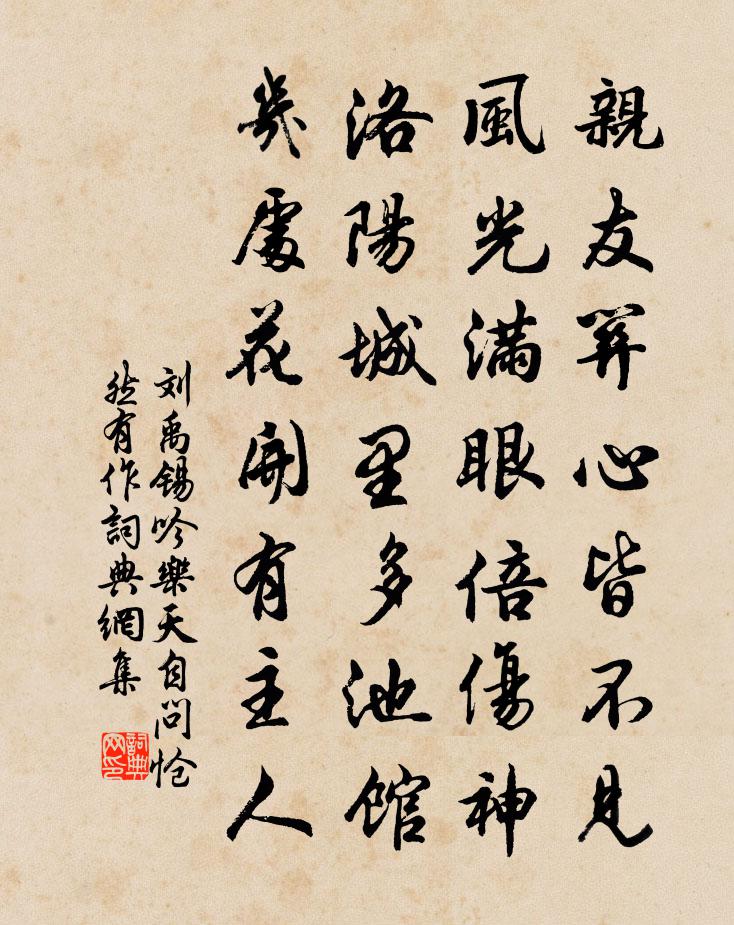 親友關心皆不見
風光滿眼倍傷神
洛陽城里多池館
幾處花開有主人
刘禹錫吟樂天自问怆
然有作詞典網集
詞典网印